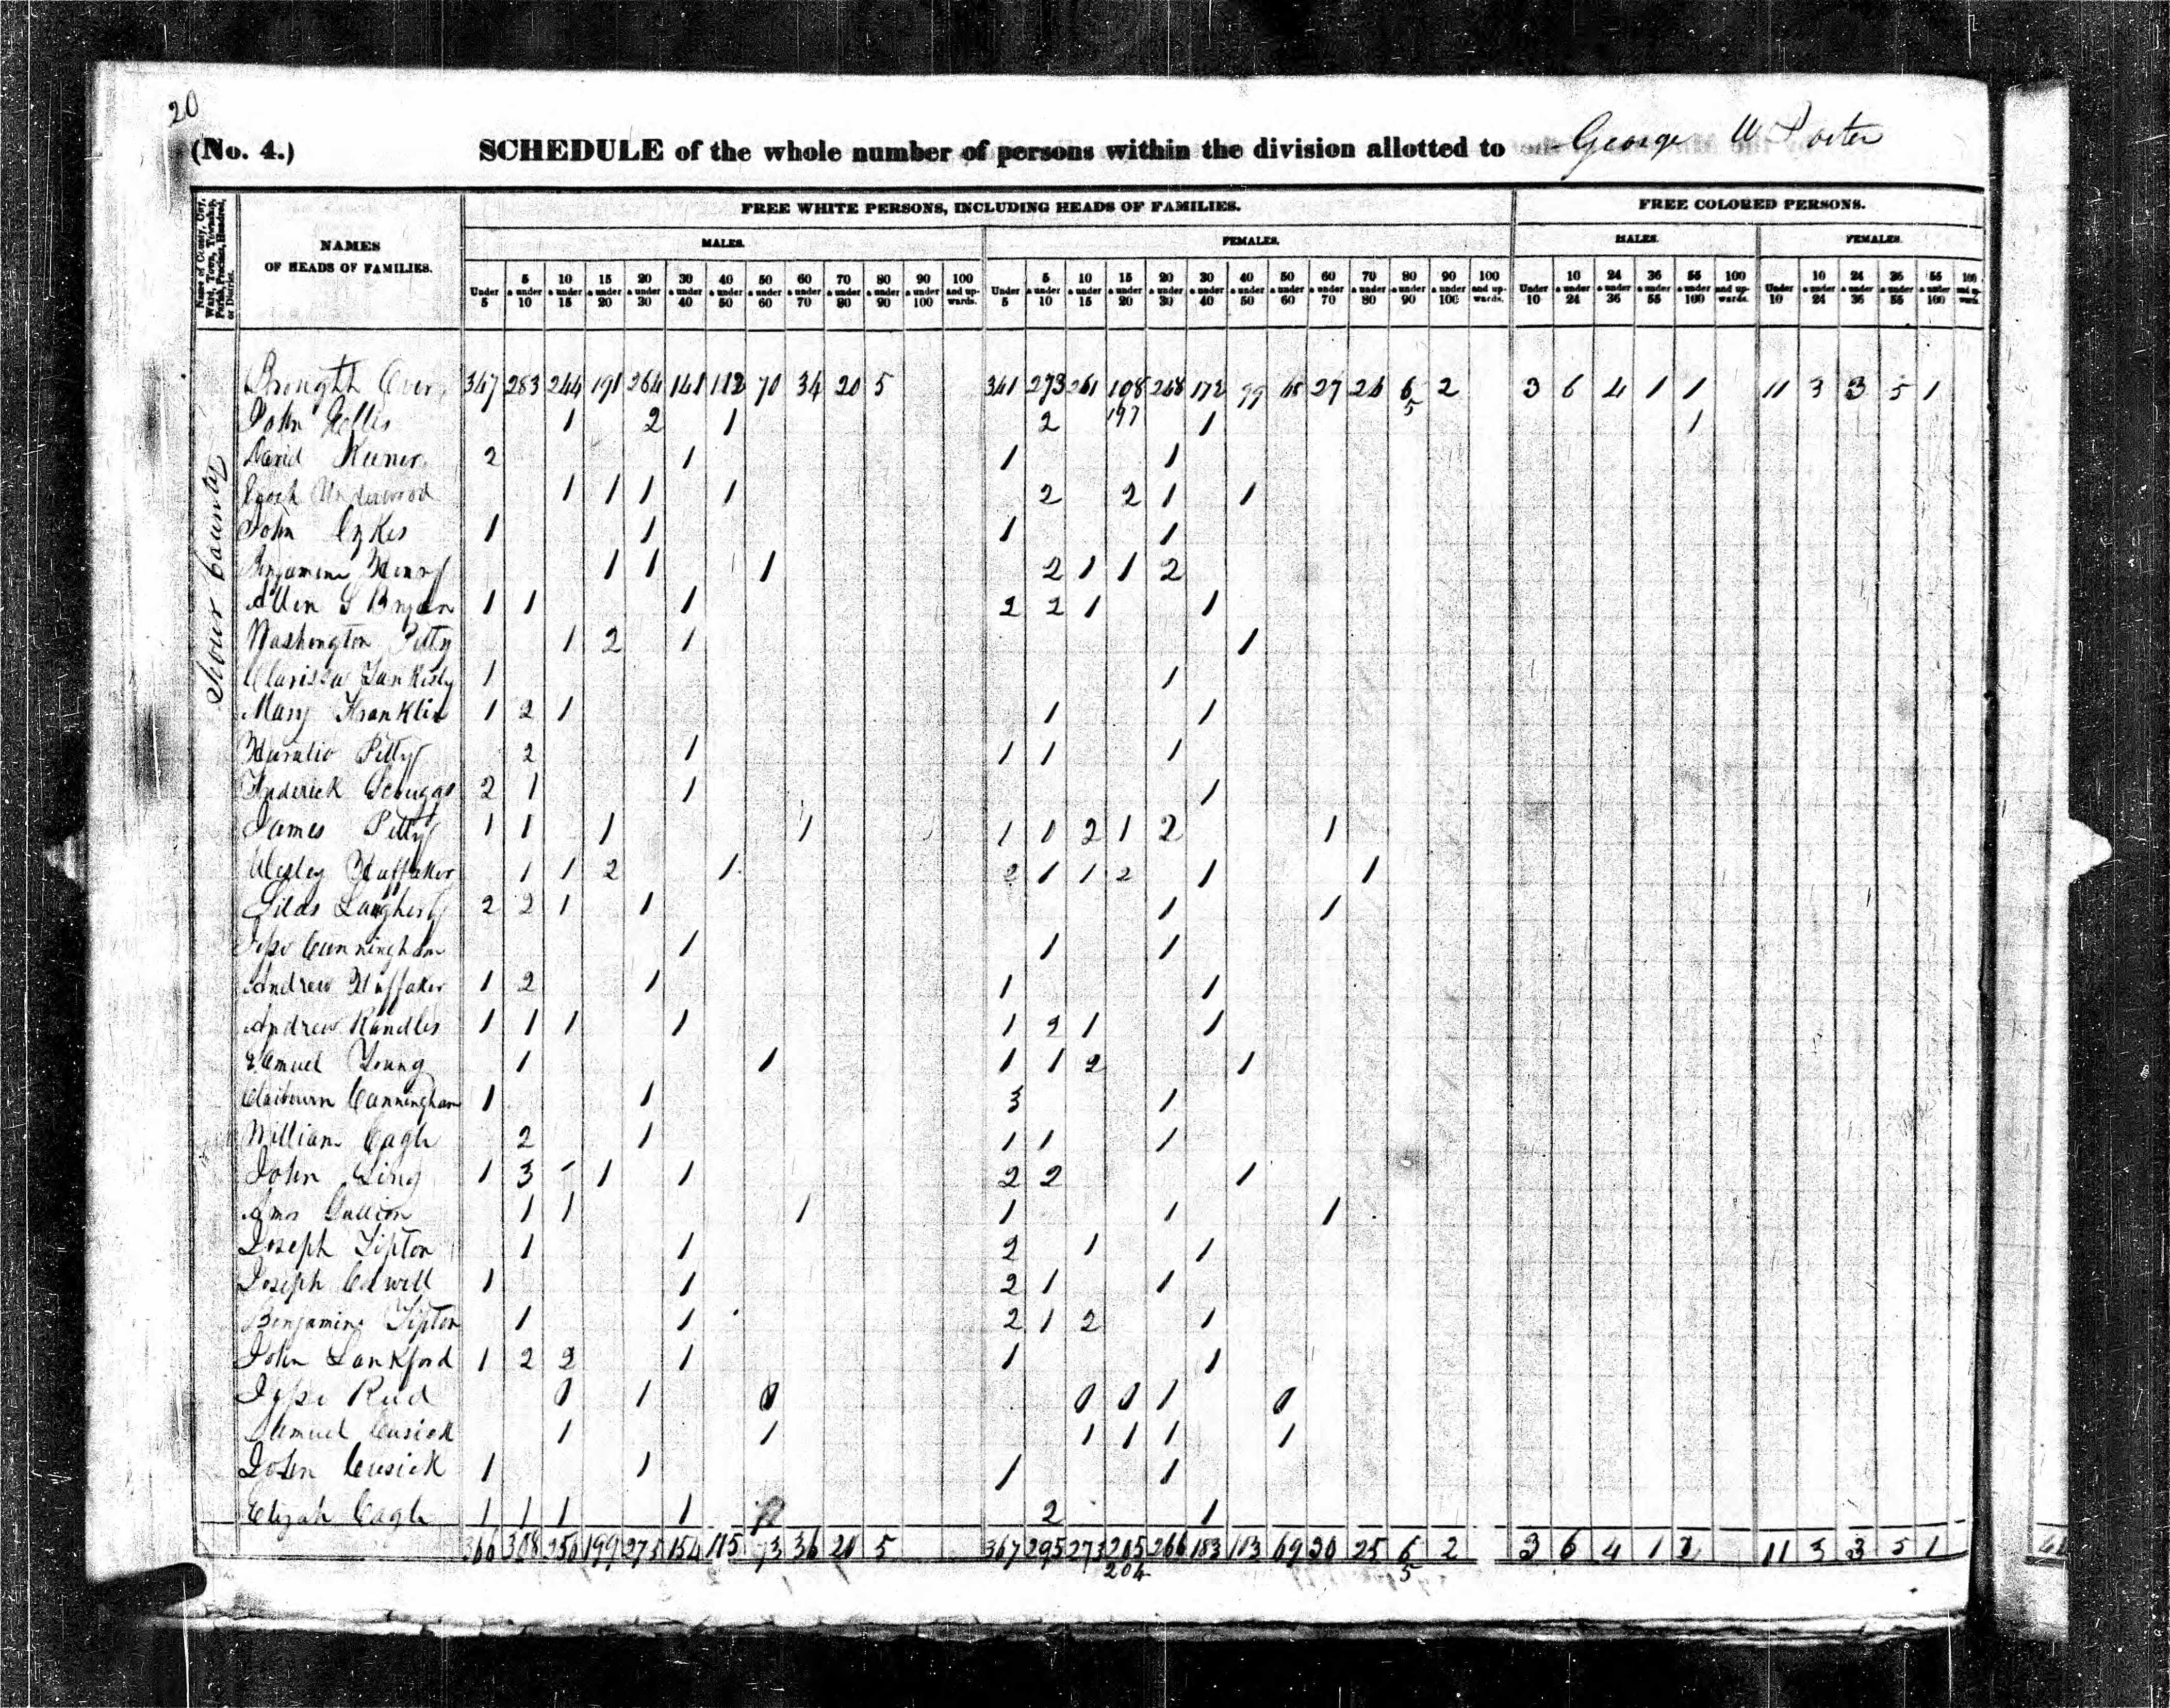 20
(No. 4.) SCHEDULE of the whole number of persons within the division allotted to George W Porter
Name of County, City, Ward, Town, Township, Parish, Precinct, Hundred, or District.
NAMES OF HEADS OF FAMILIES.
FREE WHITE PERSONS, INCLUDING HEADS OF FAMILIES.
FREE COLORED PERSONS.
MALES. FEMALES. MALES. FEMALES.
Under 5 | 5 & under 10 | 10 & under 15 | 15 & under 20 | 20 & under 30 | 30 & under 40 | 40 & under 50 | 50 & under 60 | 60 & under 70 | 70 & under 80 | 80 & under 90 | 90 & under 100 | 100 and upwards. | Under 5 | 5 & under 10 | 10 & under 15 | 15 & under 20 | 20 & under 30 | 30 & under 40 | 40 & under 50 | 50 & under 60 | 60 & under 70 | 70 & under 80 | 80 & under 90 | 90 & under 100 | 100 and upwards. | Under 10 | 10 & under 24 | 24 & under 36 | 36 & under 55 | 55 & under 100 | 100 and upwards. | Under 10 | 10 & under 24 | 24 & under 36 | 36 & under 55 | 55 & under 100 | 100 and upwards.
County
Brought Over 347 283 244 191 264 141 112 70 34 20 5 341 273 261 172 99 27 6 2 3 6 4 1 1 11 3 3 5 1
John 1 2 1 2 197 1 5 1
David Keener 2 1 1 1
Enoch Underwood 1 1 1 1 2 2 1 1
John 1 1 1 1
Benjamine Henry 1 1 1 2 1 1 2
Allen S Bryan 1 1 1 2 2 1 1
Washington Petty 1 2 1 1
Clarissa 1 1
Mary Franklin 1 2 1 1 1
Horatio Petty 2 1 1 1 1
Frederick Scruggs 2 1 1 1
James Petty 1 1 1 1 1 1 2 1 2 1
Wesley Huffaker 1 1 2 1 2 1 1 2 1 1
Silas 2 2 1 1 1 1
Jesse Cunningham 1 1 1
Andrew Huffaker 1 2 1 1 1
Andrew Randles 1 1 1 1 1 2 1 1
Samuel Young 1 1 1 1 2 1
Claibourn Cunningham 1 1 3 1
William Cagle 2 1 1 1 1
John 1 3 - 1 1 2 2 1
Amos 1 1 1 1 1 1
Joseph Tipton 1 1 2 1 1
Joseph 1 1 2 1 1
Benjamine Tipton 1 1 2 1 2 1
John Lankford 1 2 2 1 1 1
Jesse Reed 0 1 0 0 0 1 0
Samuel Cusick 1 1 1 1 1 1
John Cusick 1 1 1 1
Elijah Cagle 1 1 1 1 2 1
366 308 256 199 275 154 115 73 36 20 5 367 295 273 205 266 183 103 69 30 25 6 2 3 6 4 1 2 11 3 3 5 1
204 5